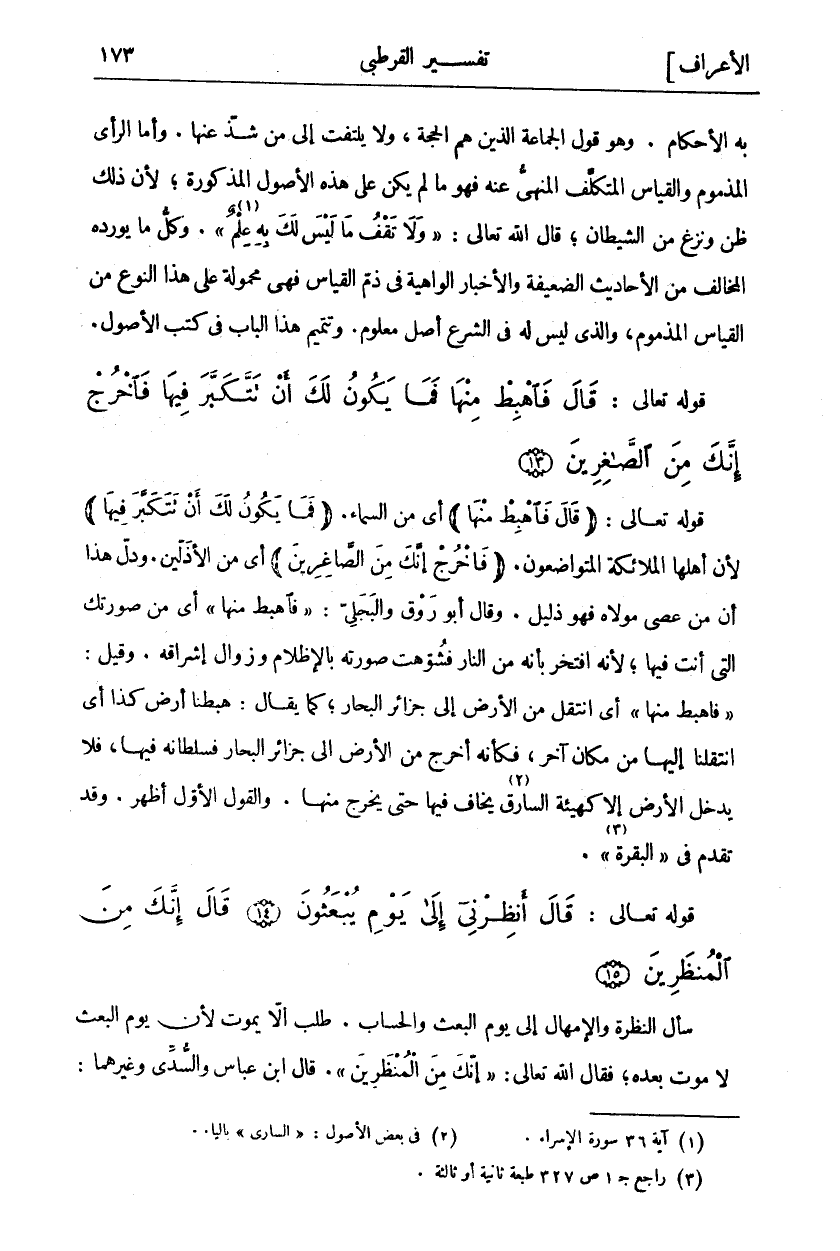 الأعراف] تفسير القرطبى ١٧٣
به الأحكام . وهو قول الجماعة الذين هم الحجة ، ولا يلتفت إلى من شذّ عنها . وأما الرأى
المذموم والقياس المتكلَّف المنهىُّ عنه فهو ما لم يكن على هذه الأصول المذكورة ؛ لأن ذلك
ظن ونزغ من الشيطان ؛ قال الله تعالى : « وَلَا تَقْفُ مَا لَيْسَ لَكَ بِهِ عِلْمٌ » (١) . وكلُّ ما يورده
المخالف من الأحاديث الضعيفة والأخبار الواهية فى ذمّ القياس فهى محمولة على هذا النوع من
القياس المذموم، والذى ليس له فى الشرع أصل معلوم. وتتميم هذا الباب فى كتب الأصول.
قوله تعالى : قَالَ فَٱهْبِطْ مِنْهَا فَمَا يَكُونُ لَكَ أَنْ تَتَكَبَّرَ فِيهَا فَٱخْرُجْ
إِنَّكَ مِنَ ٱلصَّٰغِرِينَ ﴿١٣﴾
قوله تعالى : ﴿ قَالَ فَٱهْبِطْ مِنْهَا ﴾ أى من السماء. ﴿ فَمَا يَكُونُ لَكَ أَنْ تَتَكَبَّرَ فِيهَا ﴾
لأن أهلها الملائكة المتواضعون. ﴿ فَاخْرُجْ إِنَّكَ مِنَ الصَّاغِرِينَ ﴾ أى من الأذَلّين. ودلّ هذا
أن من عصى مولاه فهو ذليل . وقال أبو رَوْق والبَجَلِىّ : « فٱهبط منها » أى من صورتك
التى أنت فيها ؛ لأنه افتخر بأنه من النار فشُوّهت صورته بالإظلام وزوال إشراقه . وقيل :
« فاهبط منها » أى انتقل من الأرض إلى جزائر البحار ؛ كما يقال : هبطنا أرض كذا أى
انتقلنا إليها من مكان آخر ، فكأنه أخرج من الأرض الى جزائر البحار فسلطانه فيها ، فلا
يدخل الأرض إلا كهيئة السارق (٢) يخاف فيها حتى يخرج منها . والقول الأوّل أظهر . وقد
تقدم فى « البقرة » (٣) .
قوله تعالى : قَالَ أَنظِرْنِىٓ إِلَىٰ يَوْمِ يُبْعَثُونَ ﴿١٤﴾ قَالَ إِنَّكَ مِنَ
ٱلْمُنظَرِينَ ﴿١٥﴾
سأل النظرة والإمهال إلى يوم البعث والحساب . طلب ألّا يموت لأن يوم البعث
لا موت بعده؛ فقال الله تعالى: « إِنَّكَ مِنَ الْمُنْظَرِينَ ». قال ابن عباس والسُّدِّى وغيرهما :
(١) آية ٣٦ سورة الإسراء . (٢) فى بعض الأصول : « السارى » بالياء .
(٣) راجع جـ ١ ص ٣٢٧ طبعة ثانية أو ثالثة .